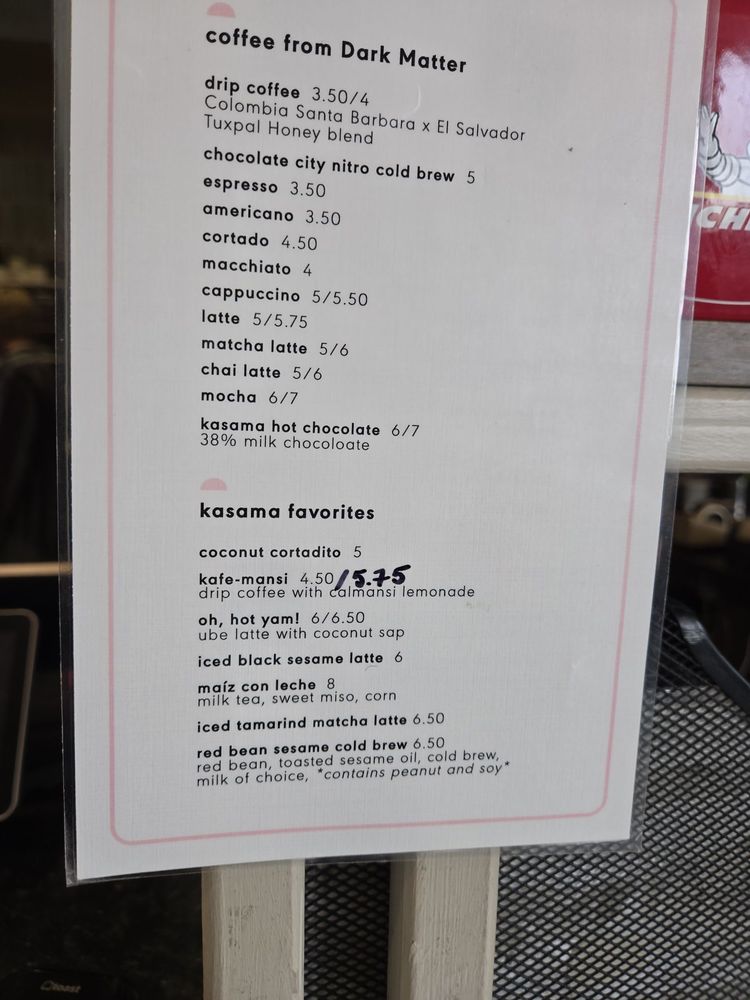 coffee from Dark Matter
drip coffee 3.50/4
Colombia Santa Barbara x El Salvador
Tuxpal Honey blend
chocolate city nitro cold brew 5
espresso 3.50
americano 3.50
cortado 4.50
macchiato 4
cappuccino 5/5.50
latte 5/5.75
matcha latte 5/6
chai latte 5/6
mocha 6/7
kasama hot chocolate 6/7
38% milk chocoloate
kasama favorites
coconut cortadito 5
kafe-mansi 4.50/5.75
drip coffee with calmansi lemonade
oh, hot yam! 6/6.50
ube latte with coconut sap
iced black sesame latte 6
maíz con leche 8
milk tea, sweet miso, corn
iced tamarind matcha latte 6.50
red bean sesame cold brew 6.50
red bean, toasted sesame oil, cold brew,
milk of choice, *contains peanut and soy*
ICH
toast